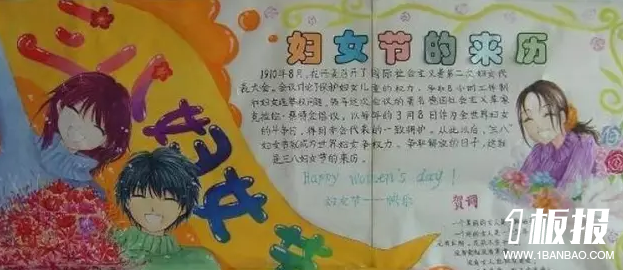 三八妇女节
妇女节的来历
1910年8月,在丹麦召开了国际社会主义者第二次妇女代
表大会。会议讨论了保护妇女儿童的权力、争取8小时工作制
和妇女选举权问题,领导这次会议的著名德国社会主义革家
克拉拉·蔡特金倡议,以每年的3月8日作为全世界妇女
的斗争日,得到与会代表的一致拥护。从此以后,三八
妇女节就成为世界妇女争权力、争取解放的日子,这就
是三八妇女节的来历。
Happy women's day!
妇女节——快乐
贺词
1板报
WWW.1BANBAO.COM